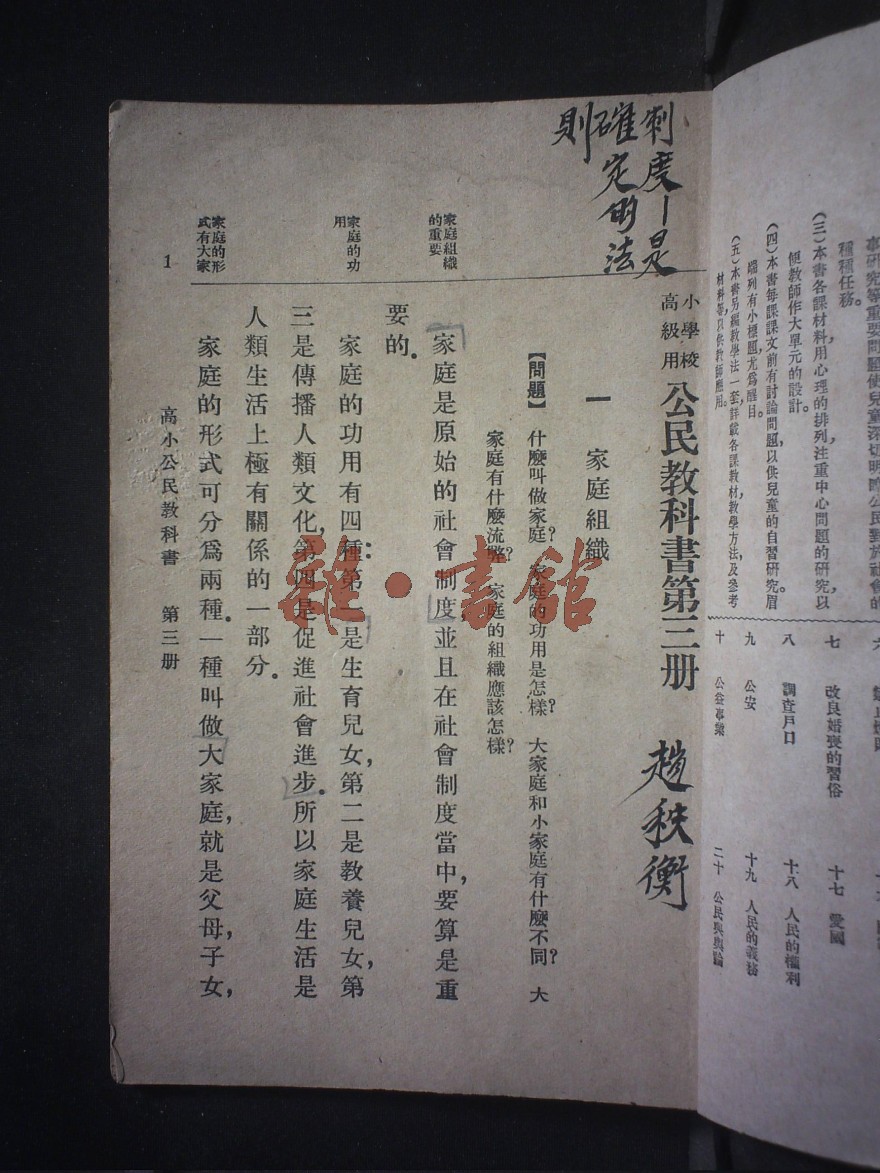 事研究等重要問題使兒童深切明瞭公民對於社會的
種種任務。
（三）本書各課材料用心理的排列注重中心問題的研究，以
便教師作大單元的設計。
（四）本書每課課文前有討論問題以供兒童的自習研究。眉
端列有小標題，尤爲醒目。
（五）本書另編教學法一套，詳載各課教材，教學方法，及參考
材料等，以供教師應用。
七　改良婚喪的習俗　十七　愛國
八　調查戶口　十八　人民的權利
九　公安　十九　人民的義務
十　公益事業　二十　公民與輿論
制度—是
確定的法
則
小學校
高級用
公民教科書第三册
趙秩衡
一　家庭組織
【問題】　什麼叫做家庭？　家庭的功用是怎樣？　大家庭和小家庭有什麼不同？　大
家庭有什麼流弊？　家庭的組織應該怎樣？
家庭組織
的重要
家庭是原始的社會制度，並且在社會制度當中，要算是重
要的。
家庭的功
用
家庭的功用有四種：第一是生育兒女，第二是教養兒女，第
三是傳播人類文化，第四是促進社會進步。所以家庭生活是
人類生活上極有關係的一部分。
家庭的形
式有大家
家庭的形式可分爲兩種。一種叫做大家庭，就是父母，子女，
1
高小公民教科書　第三册
雜·書館